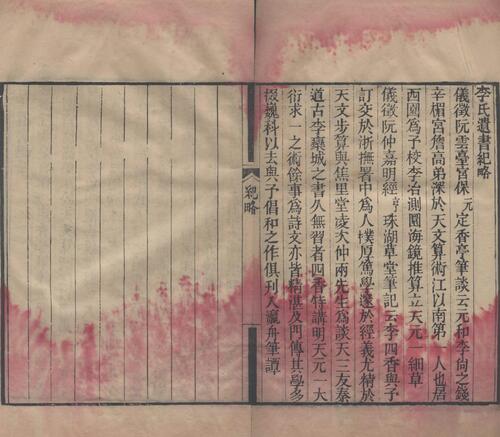 李氏遺書紀略
儀徵阮雲臺宮保元定香亭筆談云元和李尚之銳
辛楣宮詹高弟深於天文算術江以南第一人也居
西圃爲予校李冶測圓海鏡推算立天元一細草
儀徵阮仲嘉明經亨珠湖草堂筆記云李四香與予
訂交於浙撫署中爲人樸厚篤學邃於經義尤精於
天文步算與焦里堂凌次仲兩先生爲談天三友秦
道古李欒城之書久無習者四香特講明天元一大
衍求一之術餘事爲詩文亦皆精湛及門傳其學多
掇巍科以去與予倡和之作俱刊入瀛舟筆譚
紀略